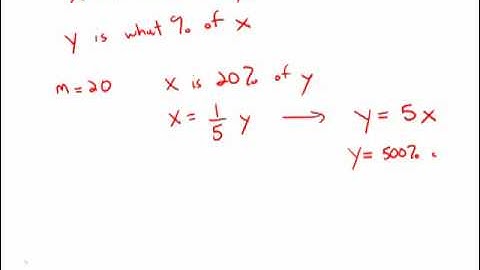 y is what % of x
m = 20 x is 20% of y
x = 1/5 y → y = 5x
y = 500%